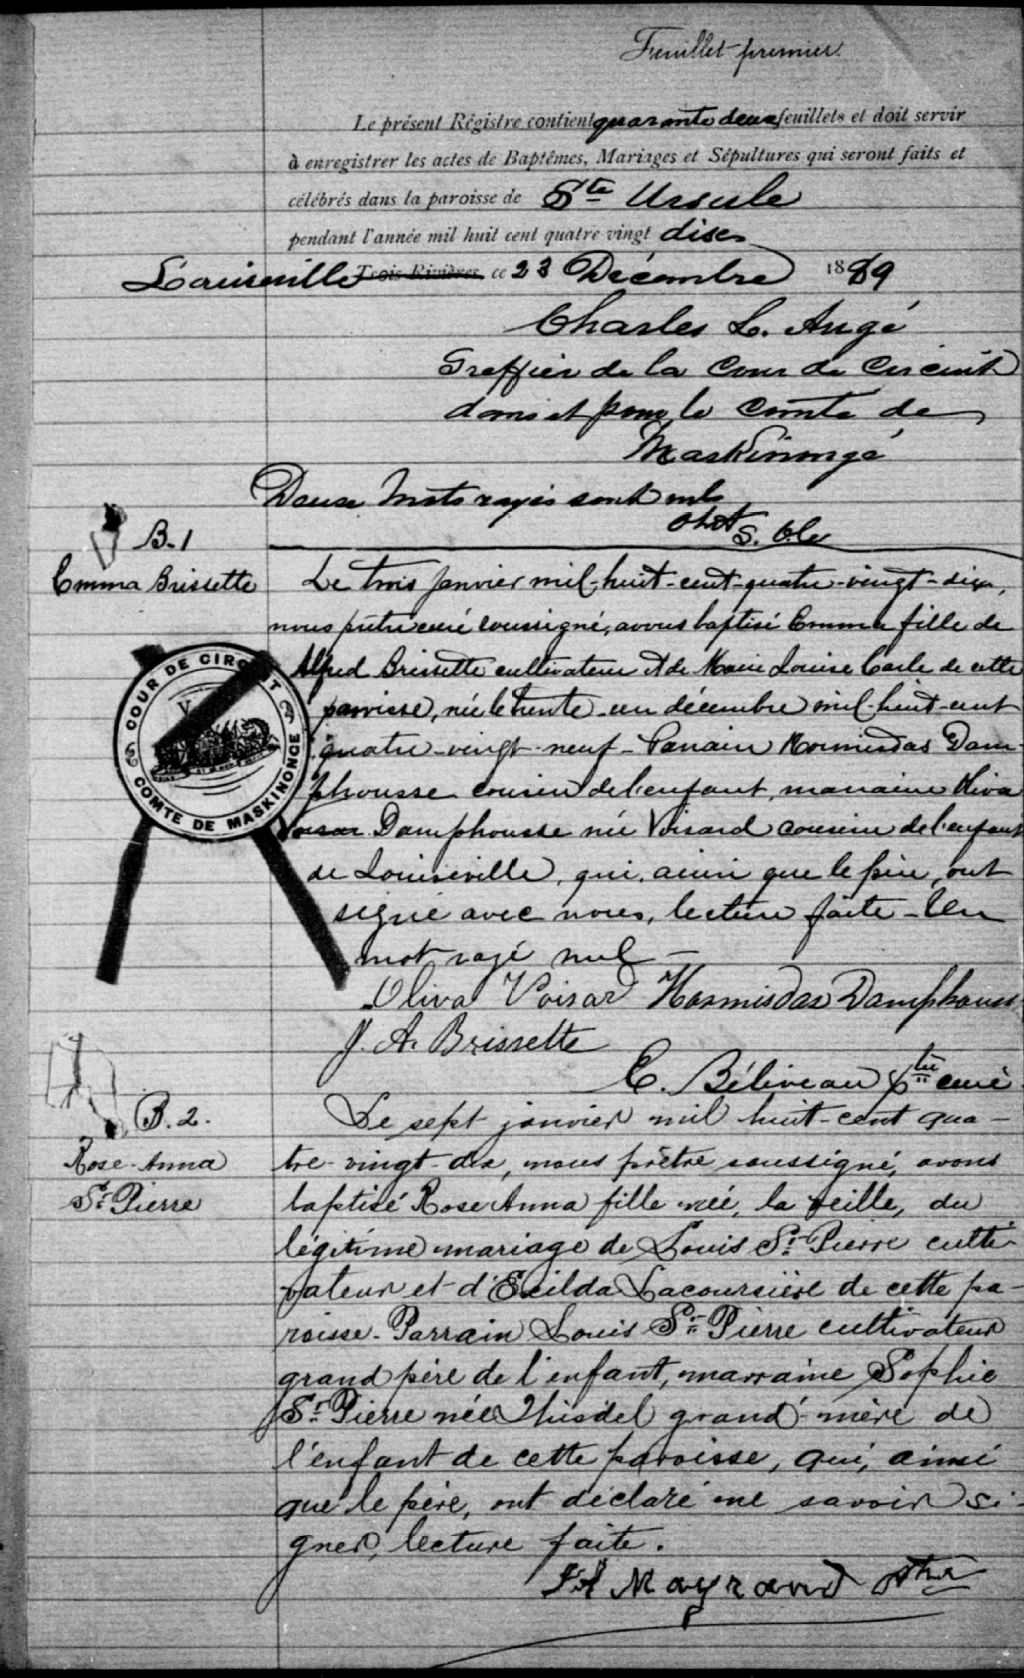 Feuillet premier.
Le présent Régistre contient quarante deux feuillets et doit servir
à enregistrer les actes de Baptêmes, Mariages et Sépultures qui seront faits et
célébrés dans la paroisse de Ste Ursule
pendant l'année mil huit cent quatre vingt dix
Louiseville Trois-Rivières, ce 23 Décembre 1889
Charles L. Augé
Greffier de la Cour de Circuit
dans et pour le Comté de
Maskinongé
Deux mots rayés sont nuls
B.1
Emma Brissette
Le trois janvier mil-huit-cent-quatre-vingt-dix,
nous prêtre curé soussigné, avons baptisé Emma fille de
Alfred Brissette cultivateur et de Marie Louise Carle de cette
paroisse, née le trente-un décembre mil-huit-cent
quatre-vingt-neuf - Parrain Hormisdas Dam-
phousse cousin de l'enfant, marraine Oliva
Voisar Damphousse née Voisard cousine de l'enfant
de Louiseville, qui, ainsi que le père, ont
signé avec nous, lecture faite - Un
mot rayé nul -
COUR DE CIRCUIT
COMTÉ DE MASKINONGÉ
Oliva Voisard Hormisdas Damphousse
J. A. Brissette
E. Béliveau Ptre curé
B.2.
Rose-Anna
St Pierre
Le sept janvier mil huit-cent qua-
tre-vingt-dix, nous prêtre soussigné, avons
baptisé Rose Anna fille née, la veille, du
légitime mariage de Louis St Pierre culti-
vateur et d'Exilda Lacoursière de cette pa-
roisse - Parrain Louis St Pierre cultivateur
grand père de l'enfant, marraine Sophie
St Pierre née Thisdel grand'-mère de
l'enfant de cette paroisse, qui, ainsi
que le père, ont déclaré ne savoir si-
gner, lecture faite.
Mayrand Ptre